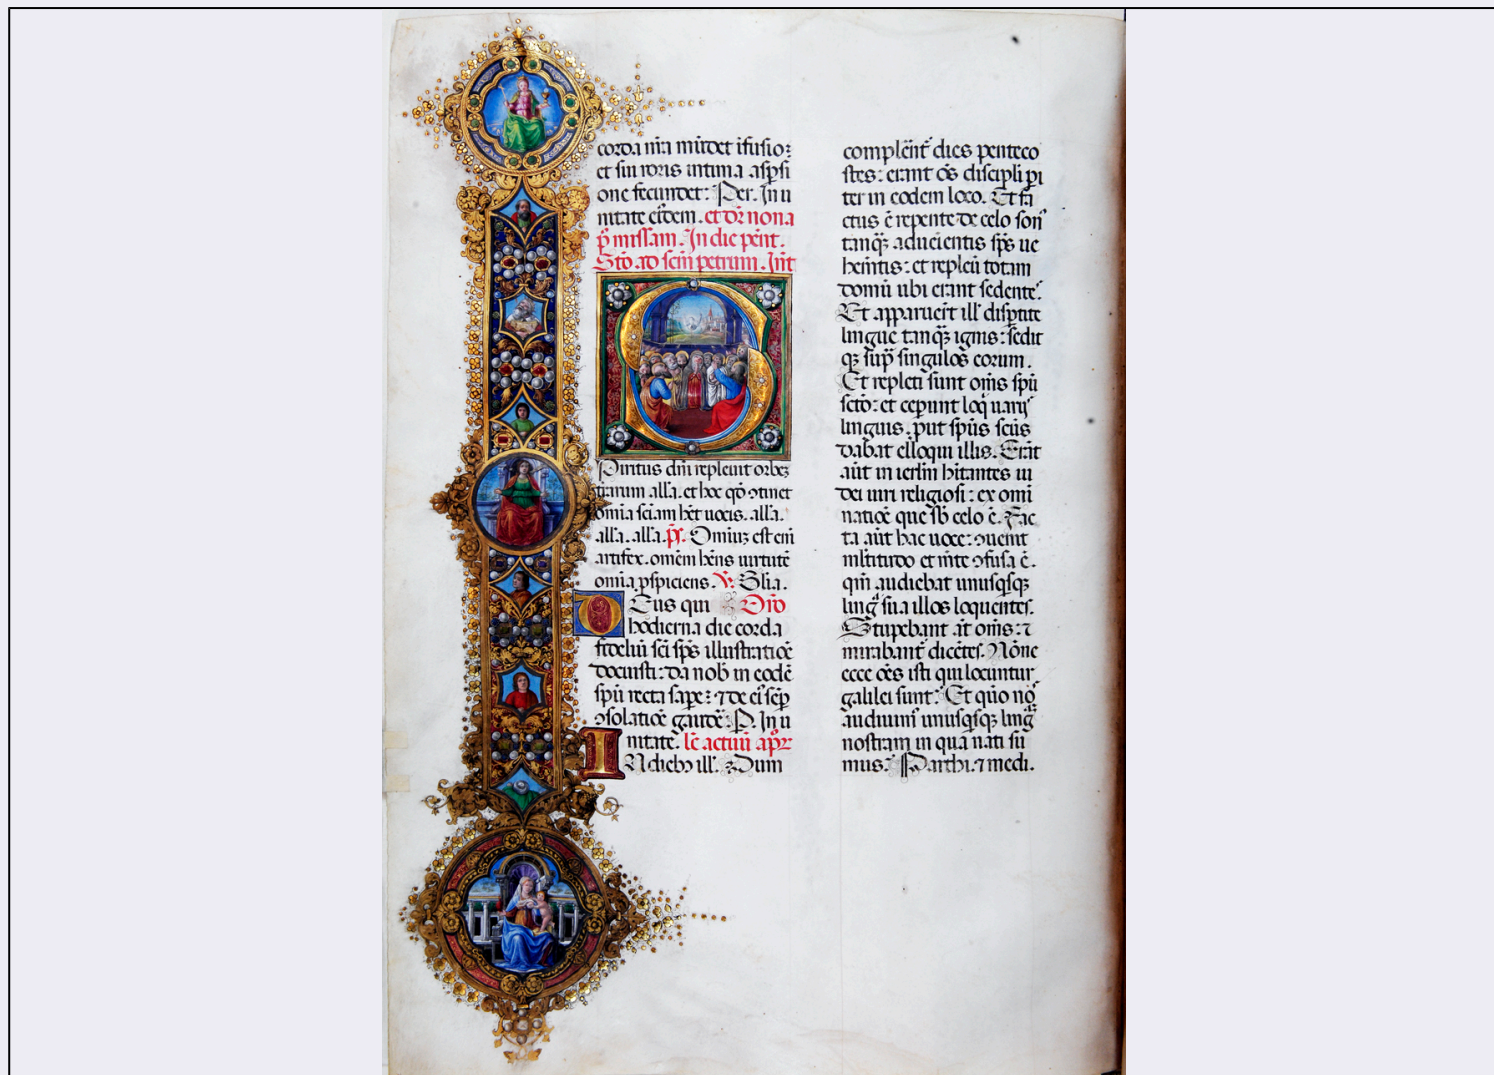 corda nr̄a mūdet ĩfusio:
et sui roris intima asp̱si
one fecundet: Per. In u
nitate eiꝰdem. et dr̄ nona
p̄ missam. In die pent̄.
Sto. ad scm̄ petrum. Int̄
Spiritus dn̄i repleuit orbeꝫ
terrarum all'a. et hoc qd̄ ꝯtinet
omnia sciam het̄ uocis. all'a.
all'a. all'a. p̄s. Omniuꝫ est eni
artifex. omnem hn̄s uirtutē
omnia ꝓspiciens. V. Glia.
DEus qui Or̄o
hodierna die corda
fidelium sci sp̄s illustratiōe
docuisti: da nob̄ in eodē
spū recta sape: ⁊ de eiꝰ semp̱
ꝯsolatiōe gaudē. P. In u
nitate. lc̄ actuū apl̄oꝝ
IN dieb' ill'. Dum
complent̄ dies penteco
stes: erant oēs discipuli pi
ter in eodem loco. Et fa
ctus ē repente de celo son'
tanqꝫ aduenientis sp̄s ue
hemētis: et repleū totam
domū ubi erant sedentes.
Et apparuer̄t ill' disp̱tite
lingue tanqꝫ ignis: sedit
qꝫ sup̄ singulos eorum.
Et repleti sunt om̄s spū
scto: et ceperunt loqui uarijs
linguis. put sp̄us sc̄us
dabat eloqui illis. Erāt
aūt in ierlm̄ hītantes iu
dei uiri religiosi: ex omī
natiōe que sb̄ celo ē. Fac
ta aūt hac uoce: ꝯuenit
mltitudo et mēte ꝯfusa ē.
qm̄ audiebat unusqsqꝫ
ling sua illos loquentes.
Stupebant at̄ om̄s: ⁊
mirabant̄ dicētes. Nōne
ecce oēs isti qui locuntur
galilei sunt: Et quō nos
audiuimꝰ unusqsqꝫ ling
nostram in qua nati su
mus: Parthi. ⁊ medi.